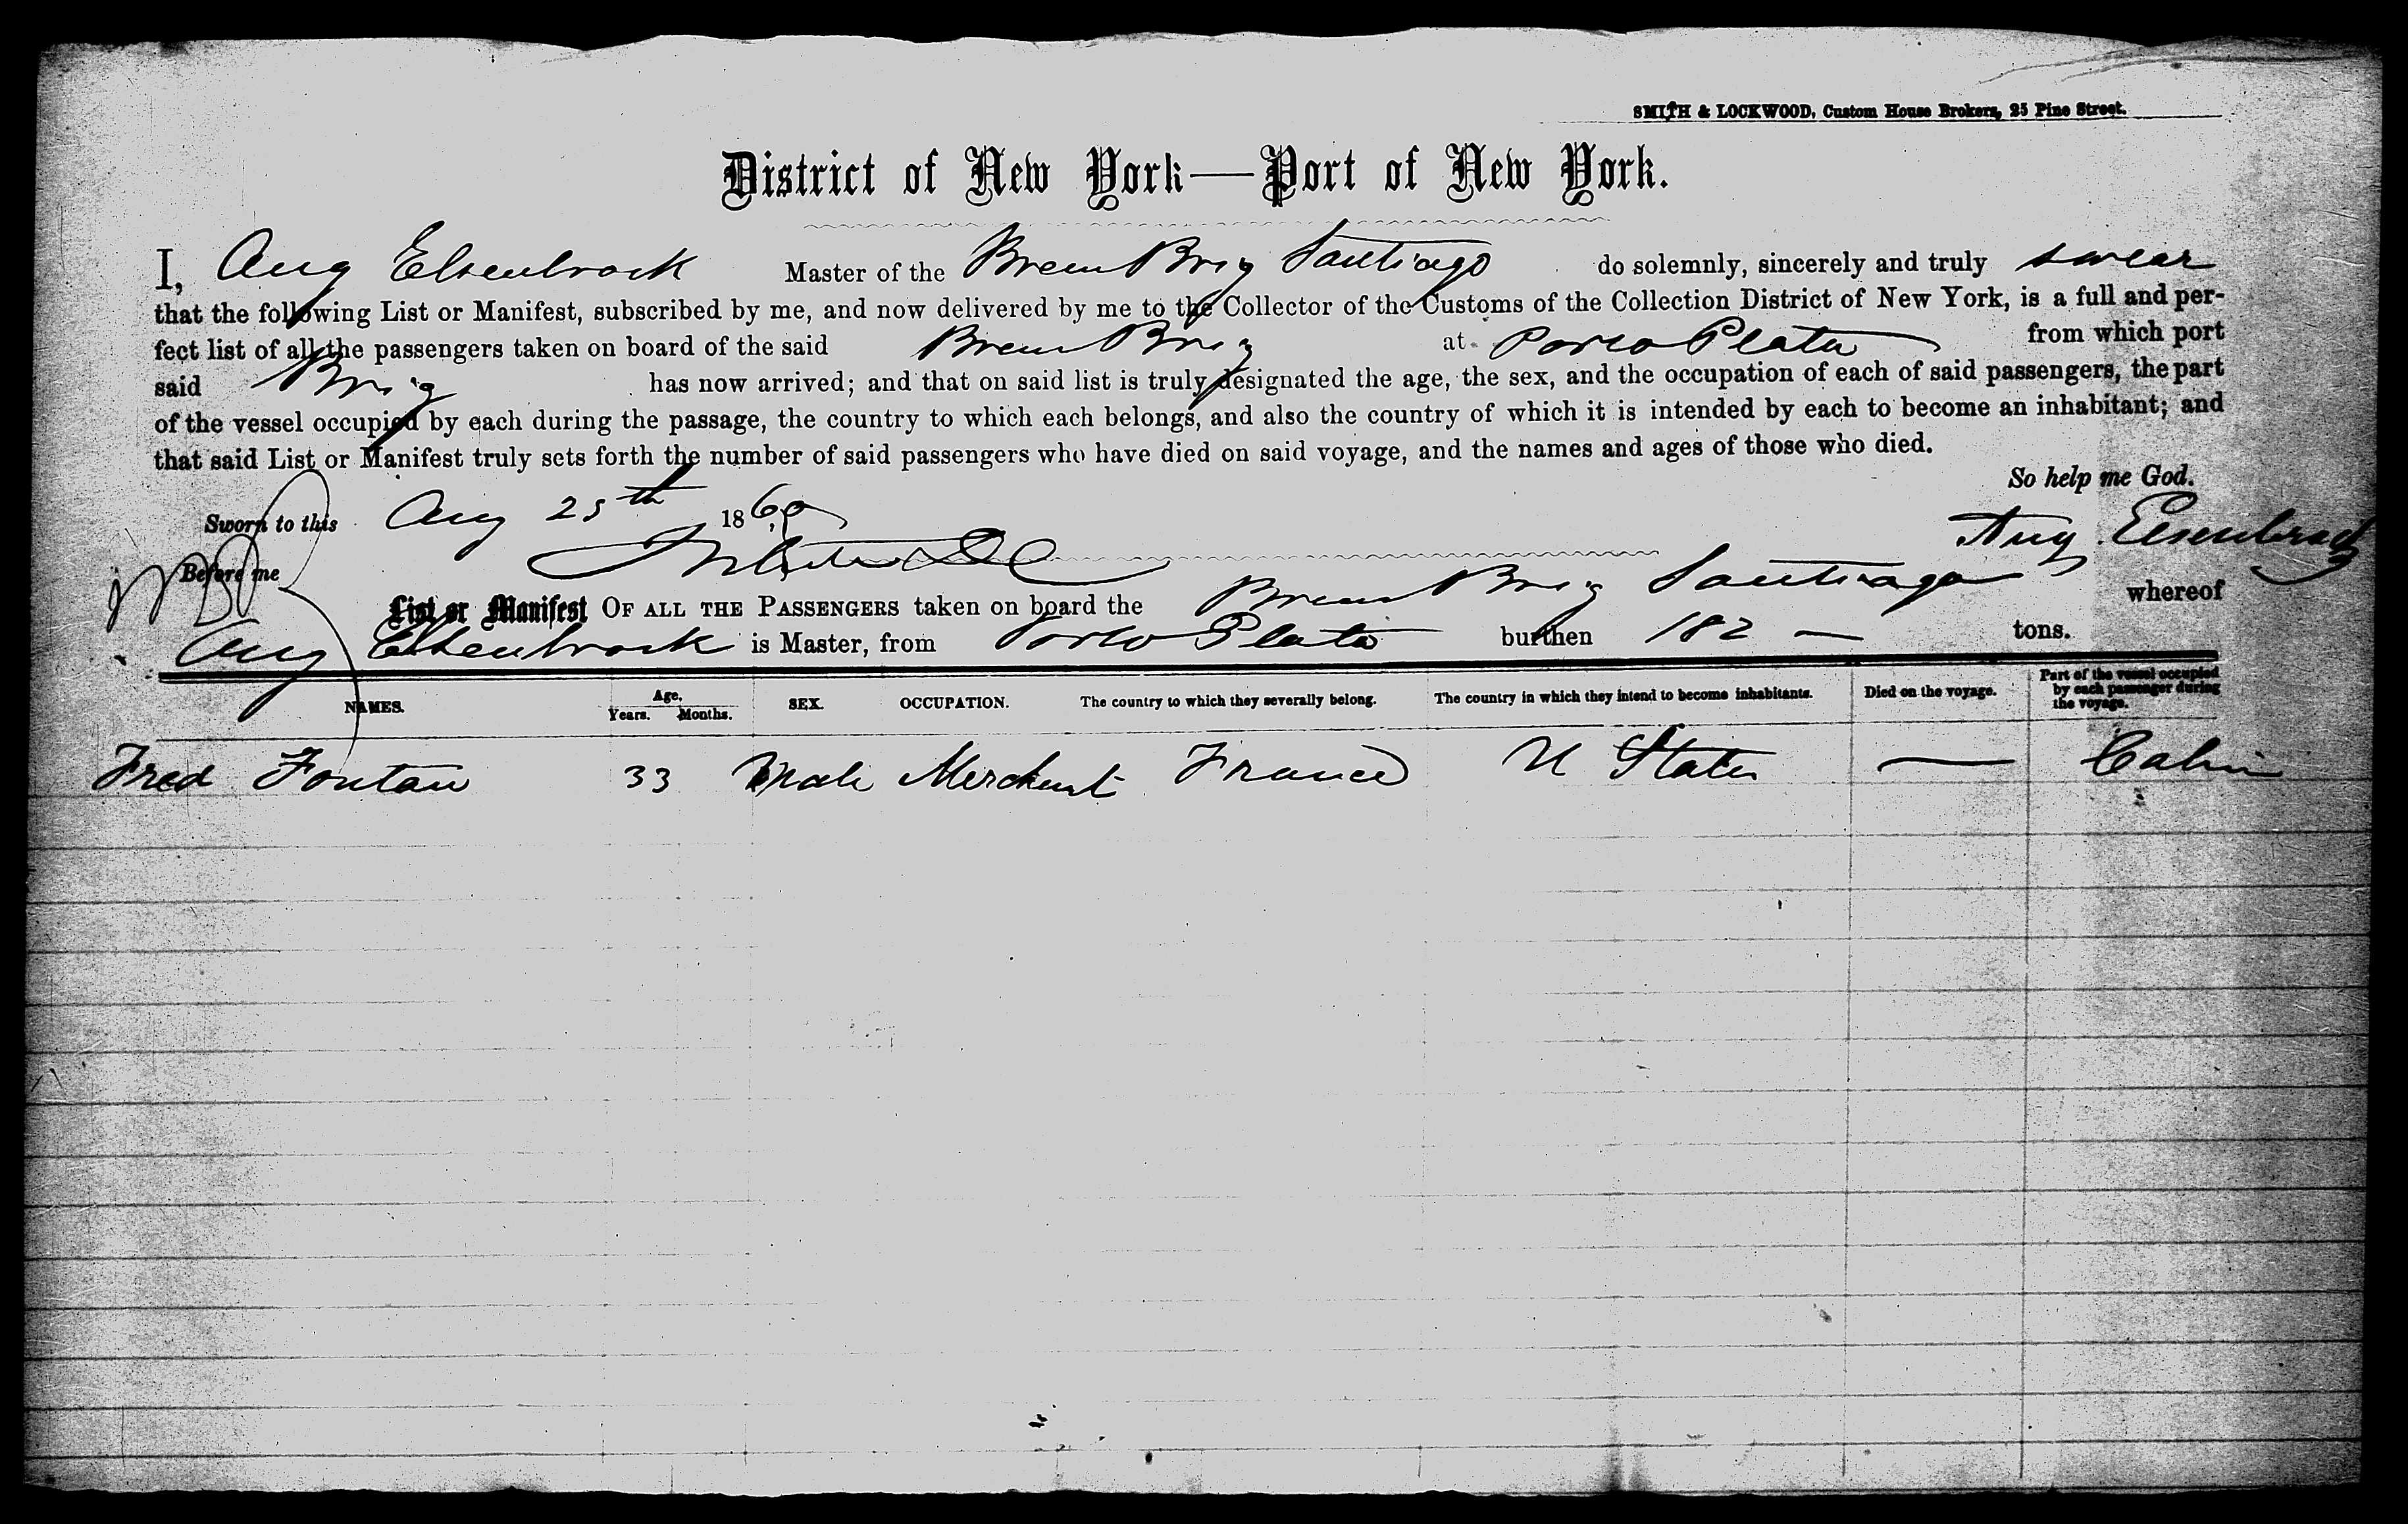 SMITH & LOCKWOOD, Custom House Brokers, 25 Pine Street.
District of New York—Port of New York.
I, Aug Elsenbrock Master of the Brem Brig Santiago do solemnly, sincerely and truly swear
that the following List or Manifest, subscribed by me, and now delivered by me to the Collector of the Customs of the Collection District of New York, is a full and per-
fect list of all the passengers taken on board of the said Brem Brig at Porto Plata from which port
said Brig has now arrived; and that on said list is truly designated the age, the sex, and the occupation of each of said passengers, the part
of the vessel occupied by each during the passage, the country to which each belongs, and also the country of which it is intended by each to become an inhabitant; and
that said List or Manifest truly sets forth the number of said passengers who have died on said voyage, and the names and ages of those who died.
So help me God.
Sworn to this Aug 25th 1860
Aug
Before me
List or Manifest OF ALL THE PASSENGERS taken on board the Brem Brig Santiago whereof
Aug Elsenbrock is Master, from Porto Plata burthen 182 — tons.
NAMES. Age. Years. Months. SEX. OCCUPATION. The country to which they severally belong. The country in which they intend to become inhabitants. Died on the voyage. Part of the vessel occupied by each passenger during the voyage.
Fred Fontau 33 Male Merchant France U States — Cabin